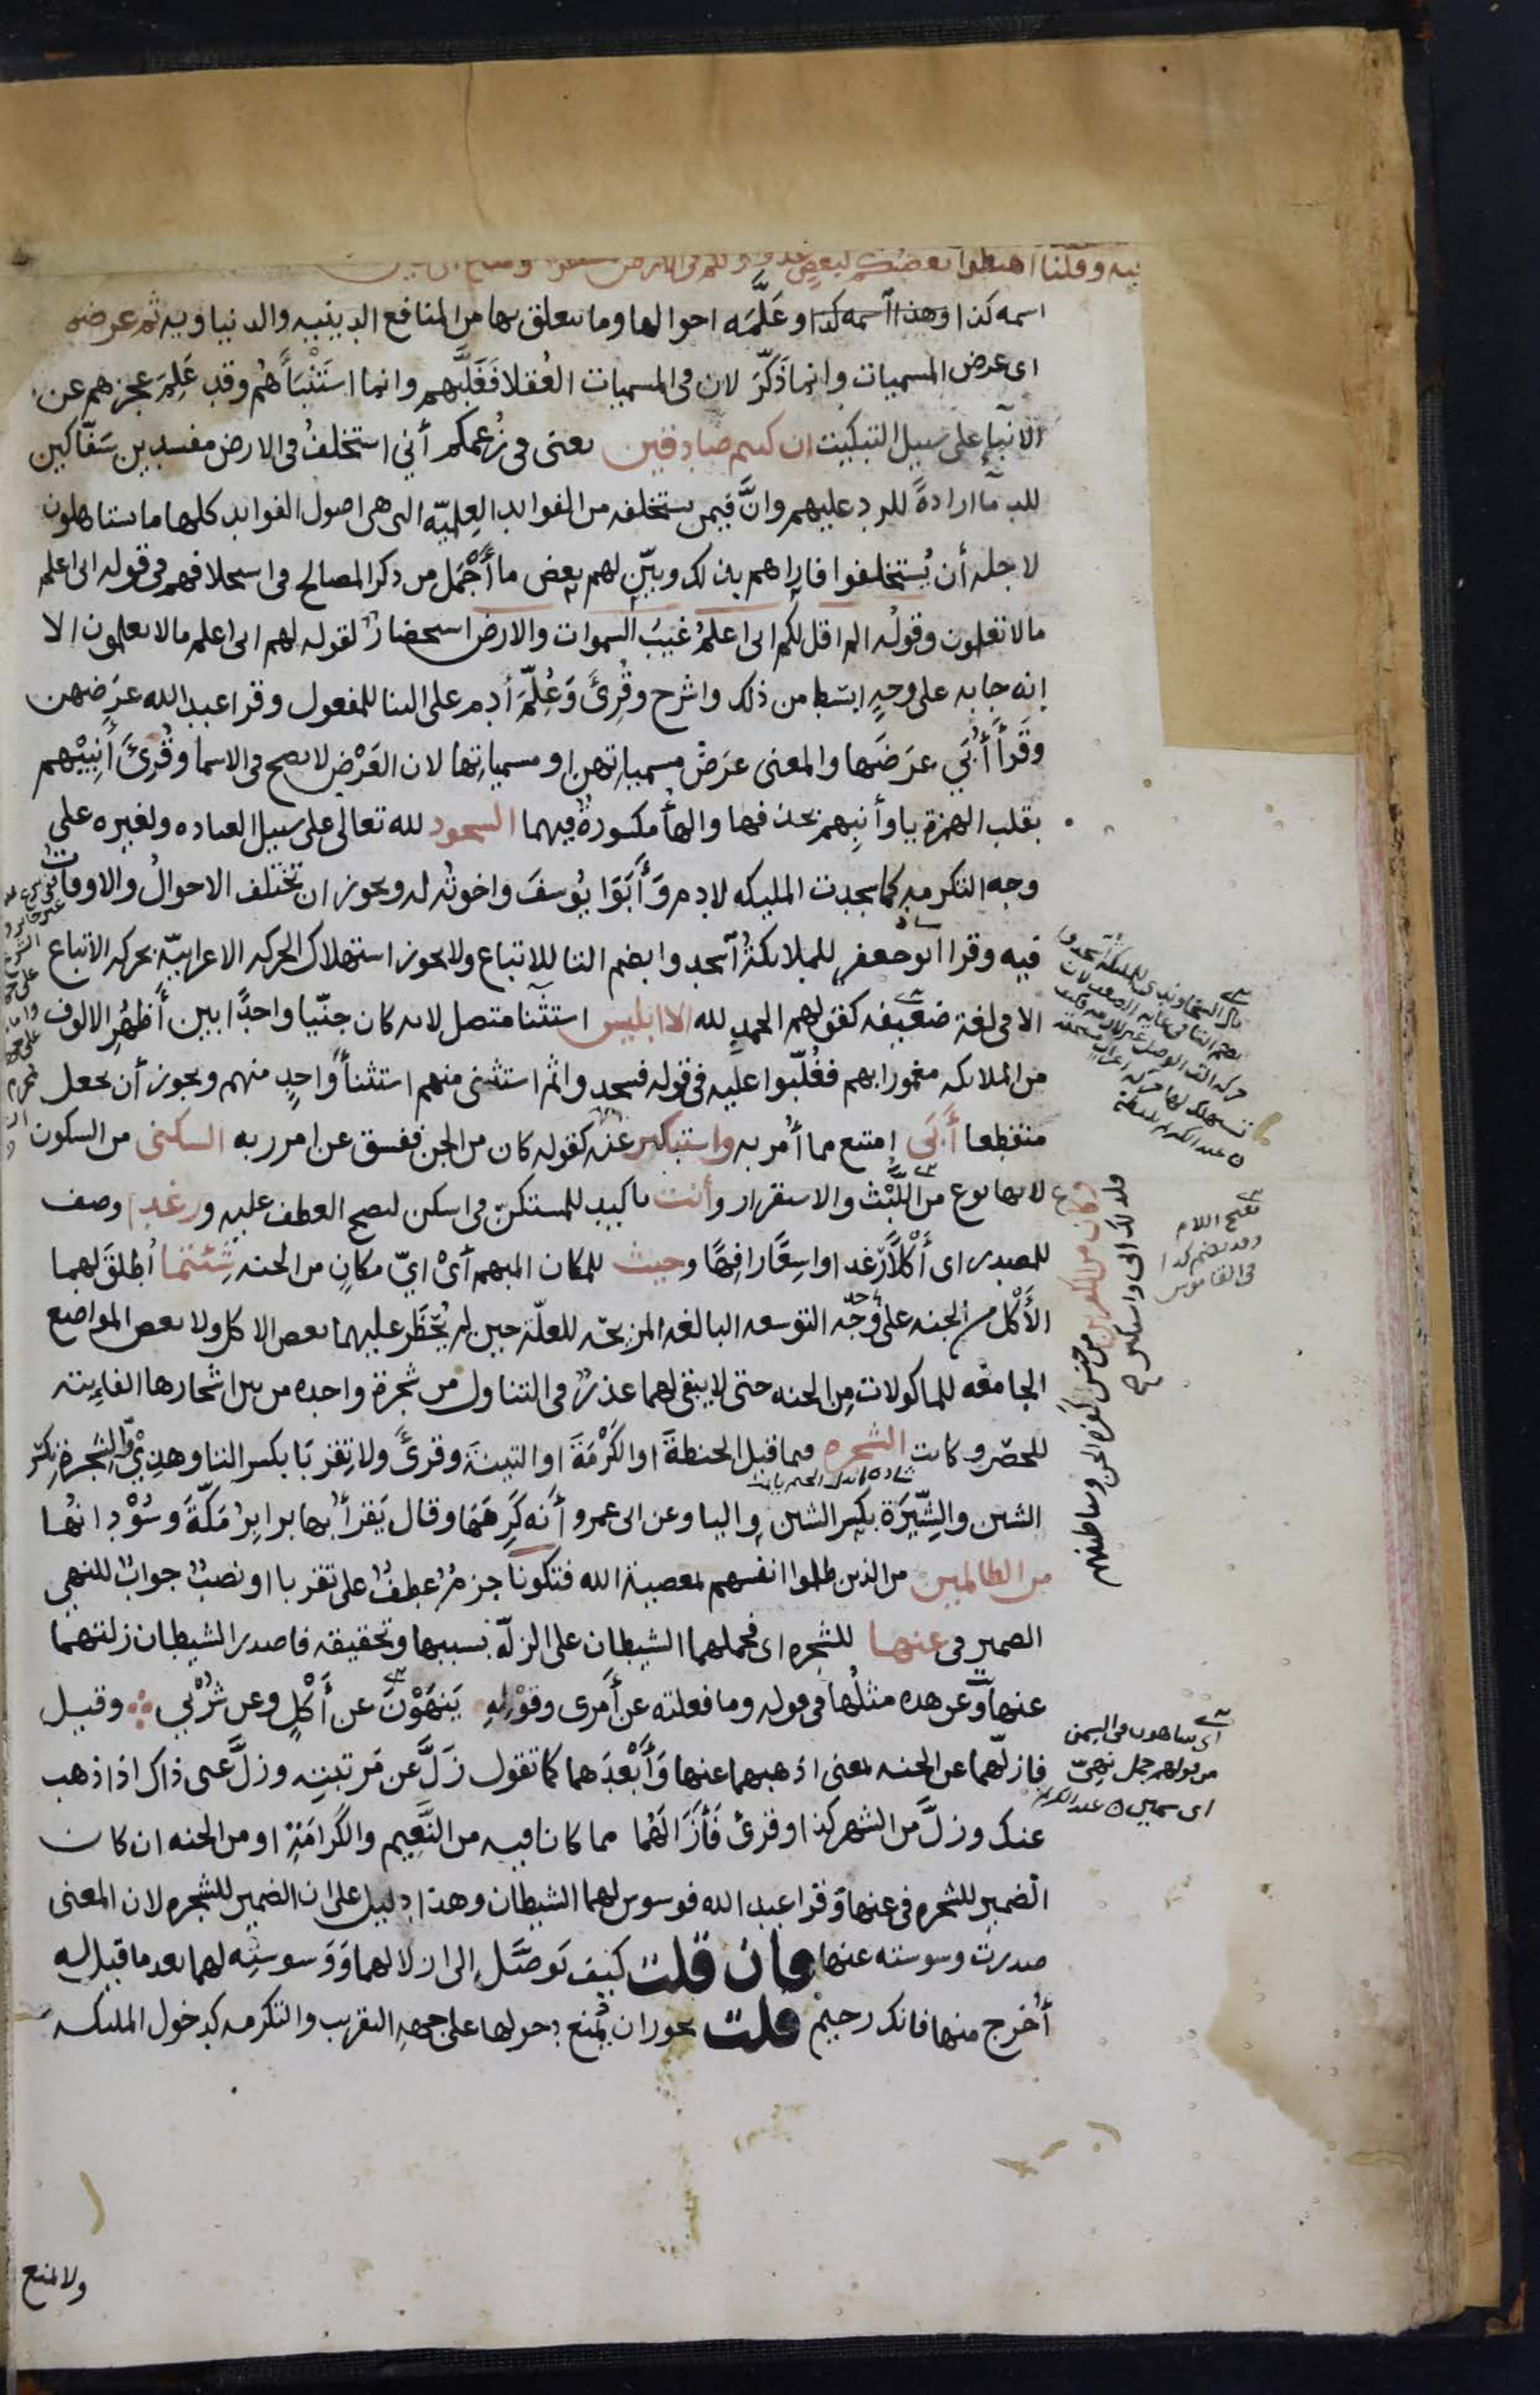 فيه وقلنا اهبطوا بعضكم لبعض عدو ولكم في الارض
اسمه كذا وهذا اسمه كذا وعَلَّمَه احوالها وما يتعلق بها من المنافع الدينيه والدنياويه ثم عرضهم
اى عرض المسميات وانما ذَكّرَ لان فى المسميات العُقلا فَغَلَّبَهم وانما استَنْبَأَهُم وقد عَلِمَ عجزهم عن
الانبآءِ على سبيل التبكيت ان كنتم صادقين يعنى فى زُعمكم أني استخلفُ فى الارض مفسدين سَفّاكين
للدمآ ارادةً للرد عليهم وانَّ فيمن يستخلفه من الفوايد العِلميّه التى هى اصول الفوايد كلها ما يستاهلون
لاجله أن يُستخلفوا فاراهم بذلك وبيّن لهم بعض ما أَجْمَل من ذكر المصالح فى استخلافهم فى قوله انى اعلم
مالا تعلمون وقوله الم اقل لكم انى اعلمُ غيبَ السموات والارض استحضارٌ لقوله لهم انى اعلم مالا تعلمون الا
انه جا به على وجهٍ ابسَط من ذلك واشرح وقُرِئَ وَعُلِّمَ أدم على البنا للمفعول وقرا عبد الله عَرَضهن
وقَرأَ أُبَي عَرَضَها والمعنى عرَضَ مسمياتهن او مسمياتها لان العَرْض لا يصح فى الاسما وقُرِئَ أَنبِيْهم
بقلب الهمزة يا وأنبِهم بحذفها والهأُ مكسورةٌ فيهما السجود لله تعالى على سبيل العباده ولغيره على
وجه التكرمه كما سجدت المليكه لادم وَأَبَوَا يُوسفَ واخوتُه له ويجوز ان تختلف الاحوالُ والاوقاتُ
فيه وقرا ابو جعفر للملايكةُ اسجدوا بضم التا للاتباع ولا يجوز استهلاك الحركه الاعرابيّة بحركه الاتباع
الا فى لغة ضعيفه كقولهم الحمدِ لله الا ابليس استثنآ متصل لانه كان جنّيا واحدًا بين أظهُرِ الالوف
من الملايكه مغمورا بهم فغُلّبوا عليه فى قوله فسجدوا ثم استثنى منهم استثنأَ واحِدٍ منهم ويجوز أن يجعل
منقطعا أَبَى امتنع مما أُمر به واستكبر عنه كقوله كان من الجن ففسق عن امر ربه السكنى من السكون
لانها نوع من اللَّبْث والاستقرار وأنت تاكيد للمستكنّ فى اسكن ليصح العطف عليه ورغدا وصف
للمصدر اى أَكْلًا رَغدا واسِعًا رافِهًا وحيث للمكان المبهم أىْ ايّ مكانٍ من الجنه شِئتما أُطلقَ لهما
الأَكْل من الجنه على وَجه التوسعه البالغه المزيحه للعلّة حين لم يُحْظَر عليهما بعض الاكل ولا بعض المواضع
الجامعه للماكولات مِن الجنه حتى لا يبقى لهما عذرٌ فى التناول من شجرة واحده من بين اشجارها الفايته
للحصر وكانت الشجره فيما قيل الحنطةَ او الكَرْمَةَ او التينةَ وقرئَ ولا تِقرَبَا بكسر التا وهذِيْ والشِجرة بكسر
الشين والشِّيَرَة بكسر الشين واليا وعن ابى عمرو أنه كَرِهَهَا وقال يَقرأُ بها برابِرُ مَكّةَ وسُوْدانُها
من الظالمين من الذين ظلموا انفسهم بمعصية الله فتكونا جزمٌ عطفٌ على تقربا او نصبٌ جوابٌ للنهى
الضمير فى عنها للشجره اى فحملهما الشيطان على الزلّة بسببها وتحقيقه فاصدر الشيطان زلتهما
عنها وعن هذه مثلُها فى قوله وما فعلته عن أمرى وقوْلِهِ يَنهَوْنَ عن أَكْلٍ وعن شُرْبِ وقيل
فازلّهما عن الجنه بمعنى اذهبهما عنها وَأَبْعَدَهما كما تقول زَلَّ عن مَرتبتِه وزلَّ عنى ذاك اذا ذهب
عنك وزلَّ من الشهر كذا وقرئ فَأَزَالَهُما مما كانا فيه من النَّعِيم والكَرامَةِ او من الجنه ان كان
الضمير للشجره فى عنها وقرا عبد الله فوسوس لهما الشيطان وهذا دليل على ان الضمير للشجره لان المعنى
صدرت وسوسته عنها فان قلت كيف تَوصَّل الى ازلالهما وَوَسوستِه لهما بعد ما قيل له
أخرج منها فانك رجيم قلت يجوز ان يُمنع دخولها على جهه التقريب والتكرمه كدخول المليكه
ولا يمنع
بفتح اللام
وقد يضم كذا
فى القاموس
وكان من الكافرين من جنس كفره الجن وشياطينهم
فلذلك ابى واستكبر
اى يتناهون فى السمن
من قولهم جمل نهىّ
اى سمين